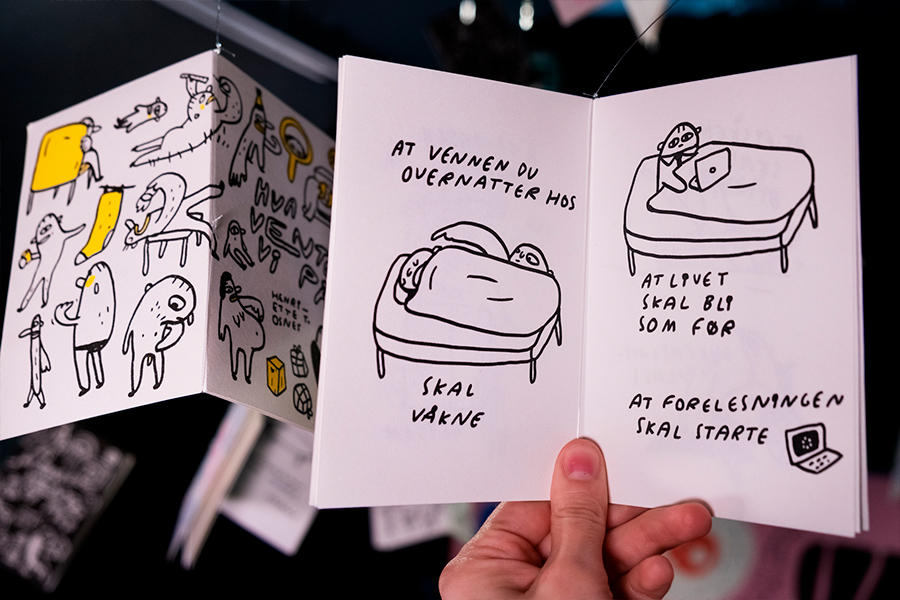 HVA
VENT
VI
HENRI-
ETTE T.
OSNES
AT VENNEN DU
OVERNATTER HOS
SKAL
VÅKNE
AT LIVET
SKAL BLI
SOM FØR
AT FORELESNINGEN
SKAL STARTE